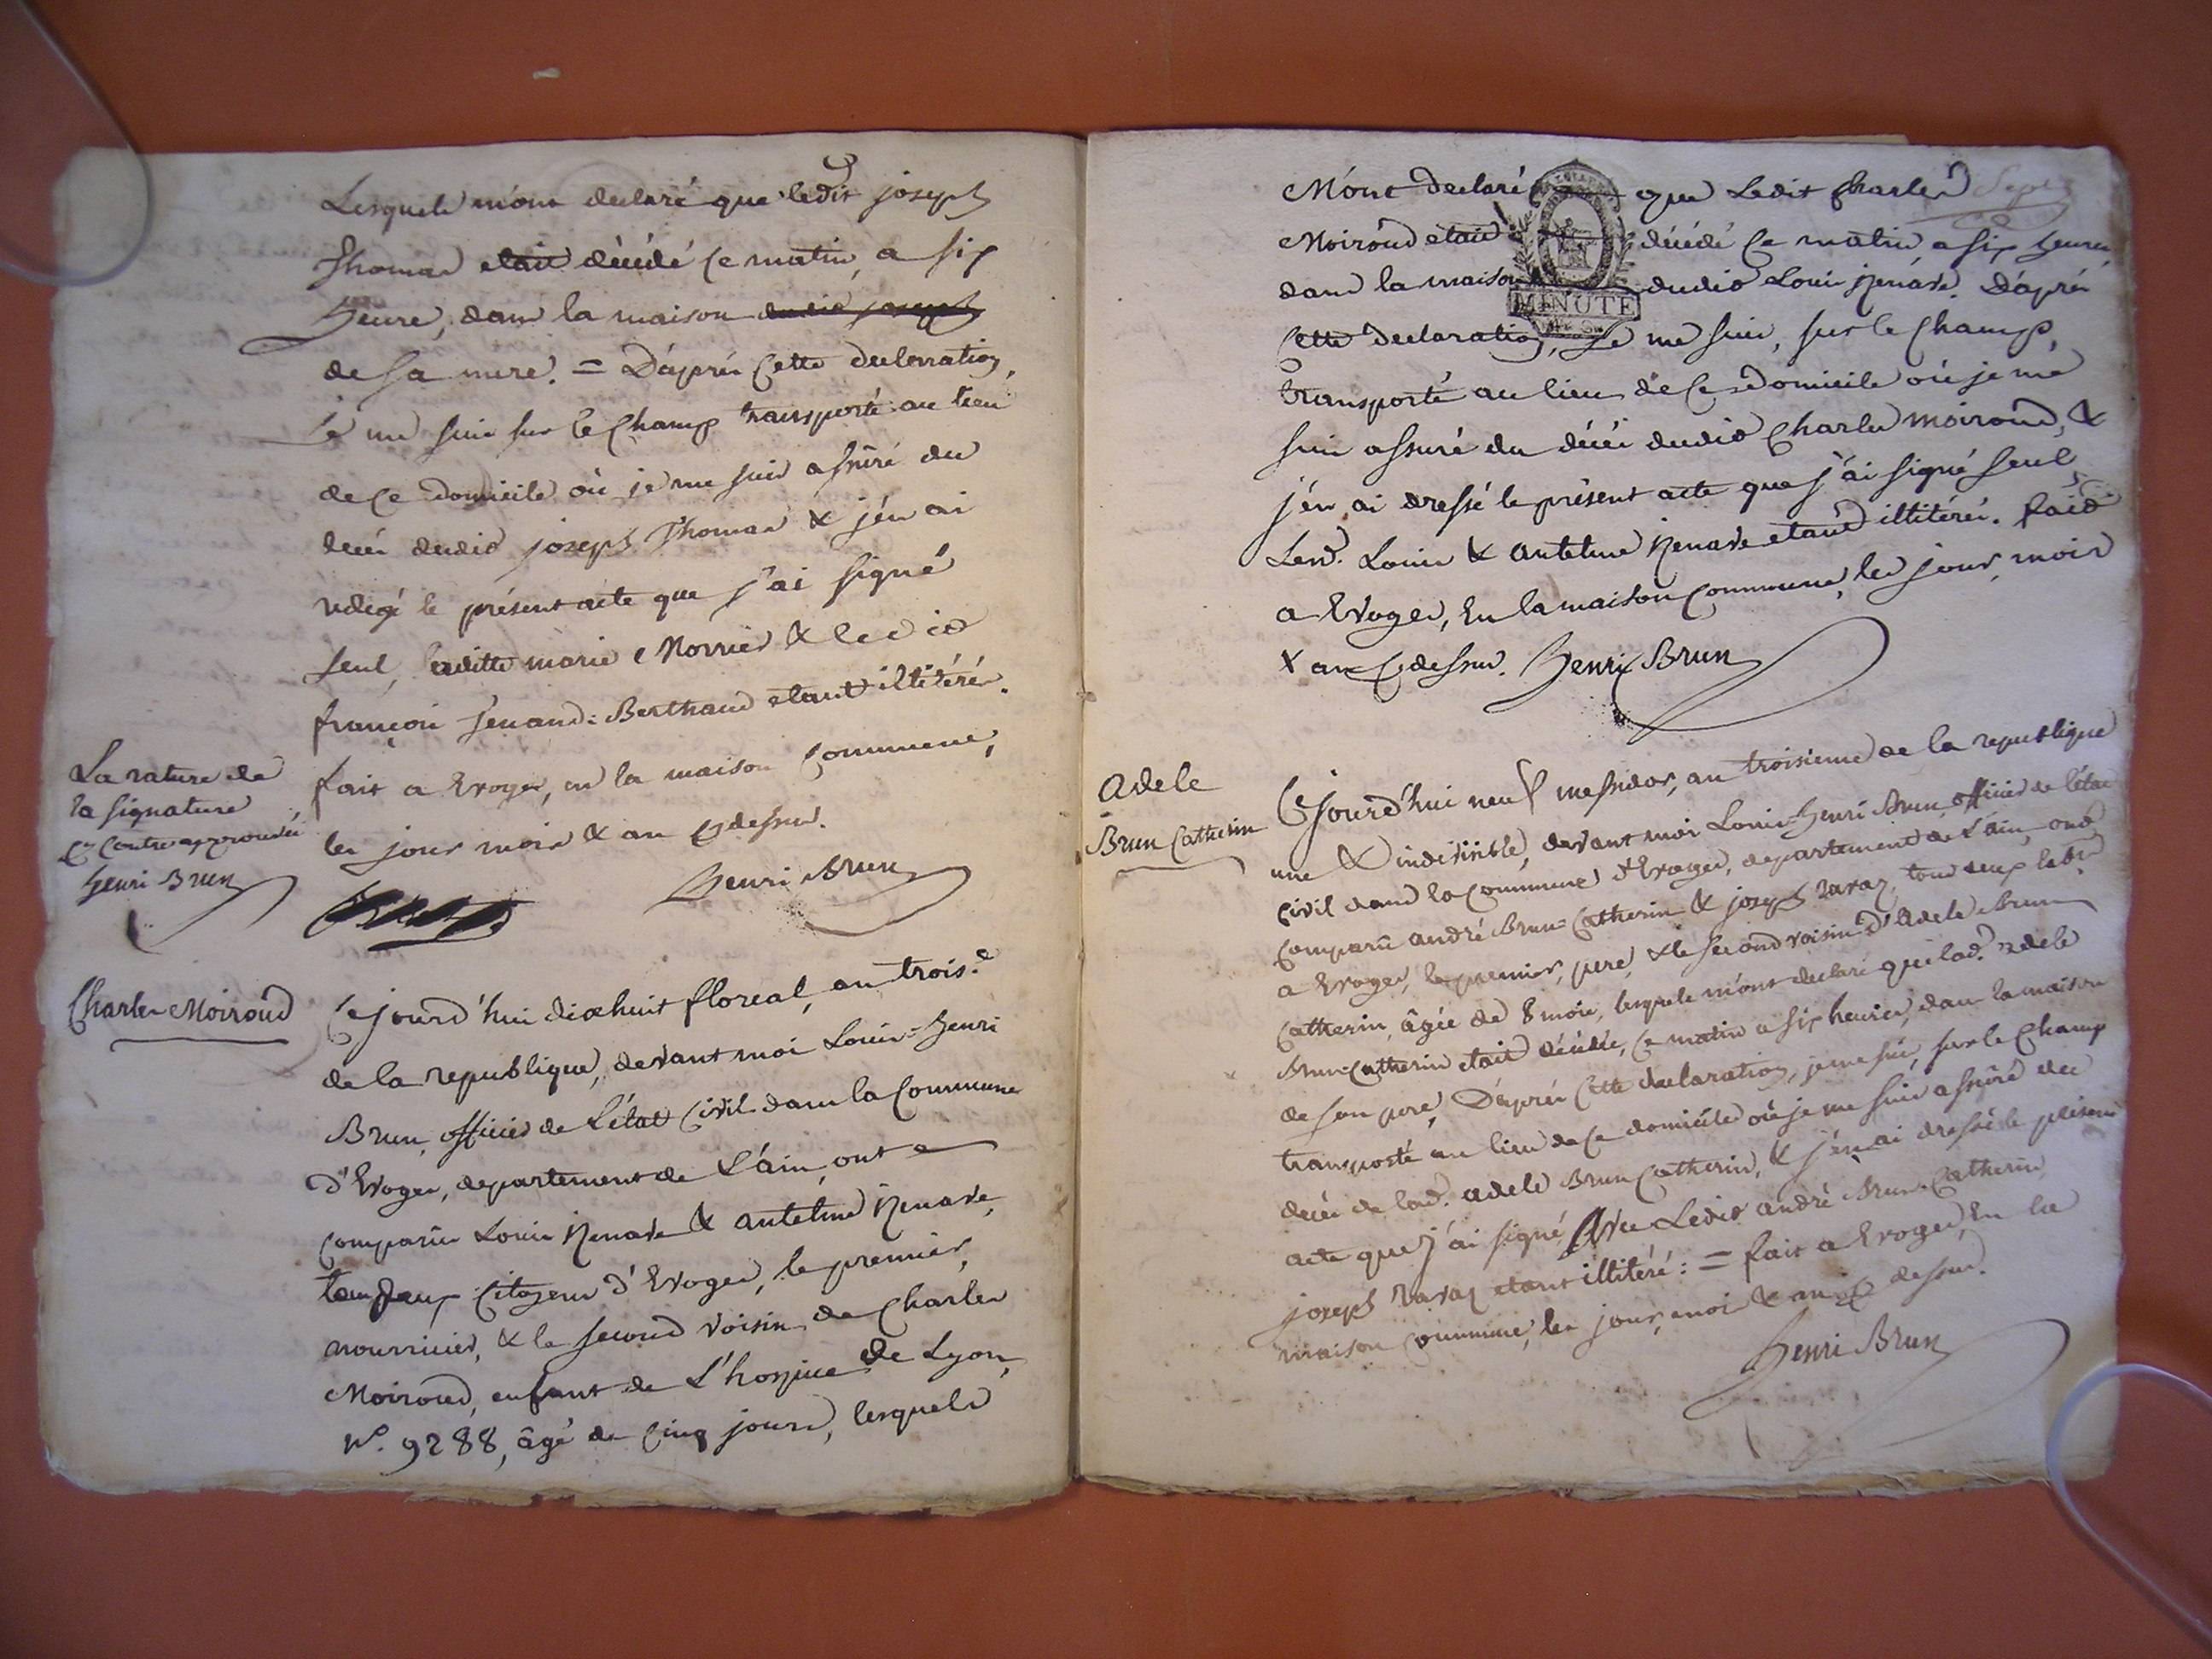 Lesquels m'ont declaré que ledit joseph
Thomas etait décédé ce matin, a six
heure, dans la maison dudit joseph
de sa mere. = D'après cette declarration,
Je me suis sur le champ transporté au lieu
de ce domicile où je me suis assuré du
decès dudit joseph Thomas & j'en ai
redigé le présent acte que j'ai signé
seul, laditte marie Morrier & ledit
françois Jenand = Berthaud etant illitérés.
fait a Evoges, en la maison commune,
La rature de
la signature
cy contre approuvée
Henri Brun
les jour mois & an cy dessus.
Henri Brun
Charles Moiroud
Cejourd'hui dixhuit floreal, an trois.e
de la republique, devant moi Louis = Henri
Brun, officier de l'état civil dans la commune
d'Evoges, departement de L'ain, ont
comparus Louis Renave & antelme Renave,
tous deux citoyens d'Evoges, le premier,
nourricier, & le second voisin de Charles
Moiroud, enfant de L'hospice de Lyon,
N°. 9288, âgé de cinq jours, lesquels
Sept
M'ont declaré que Ledit Charles
Moiroud etait décédé ce matin a six heures,
dans la maison dudit Louis Renave. D'après
cette declaration, Je me suis, sur le champ,
transporté au lieu de ce Domicile où je me
suis assuré du décès dudit Charles moiroud, &
j'en ai dressé le présent acte que j'ai signé seul,
Lesd. Louis & antelme Renave etant illitérés. fait
a Evoges, En la maison commune, les jour, mois
& an cy dessus. Henri Brun
MINUTE
Adele
Brun Catherin
Cejourd'hui neuf messidor, an troisieme de la republique
une & indivisible, devant moi Louis=Henri Brun, officier de l'état
civil dans la commune d'Evoges, departement de L'ain, ont
comparu andré Brun=Catherin & joseph ravaz, tous deux
a Evoges, le premier, pere, & le second voisin d'adele Brun
Catherin, âgée de 8 mois, lesquels m'ont declaré que lad. adele
Brun=Catherin etait décédée, ce matin a six heures, dans la maison
de son pere, D'après cette declaration, je me suis, sur le champ
transporté au lieu de ce domicile où je me suis assuré du
decès de lad. adele Brun Catherin, & j'en ai dressé le présent
acte que j'ai signé, Avec Ledit andré Brun=Catherin,
joseph ravaz etant illitéré : = fait a Evoges, En la
maison commune, les jour, mois & an cy dessus.
Henri Brun